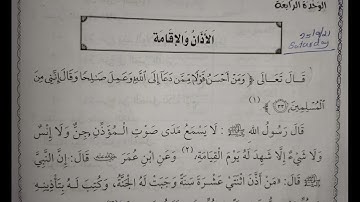 الوحدة الرابعة
25/9/21
Saturday
الأذان والإقامة
قَالَ تَعَالَى ﴿ وَمَنْ أَحْسَنُ قَوْلًا مِمَّن دَعَا إِلَى اللَّهِ وَعَمِلَ صَالِحًا وَقَالَ إِنَّنِي مِنَ
الْمُسْلِمِينَ ۝٣٣ ﴾ (١)
قَالَ رَسُولُ اللهِ ﷺ : لَا يَسْمَعُ مَدَى صَوْتِ الْمُؤَذِّنِ جِنٌّ وَلَا إِنْسٌ
وَلَا شَيْءٌ إِلَّا شَهِدَ لَهُ يَوْمَ الْقِيَامَةِ، (٢) وَعَنِ ابْنِ عُمَرَ قَالَ: إِنَّ النَّبِيَّ
ﷺ قَالَ: مَنْ أَذَّنَ اثْنَتَيْ عَشْرَةَ سَنَةً وَجَبَتْ لَهُ الْجَنَّةُ، وَكُتِبَ لَهُ بِتَأْذِينِهِ